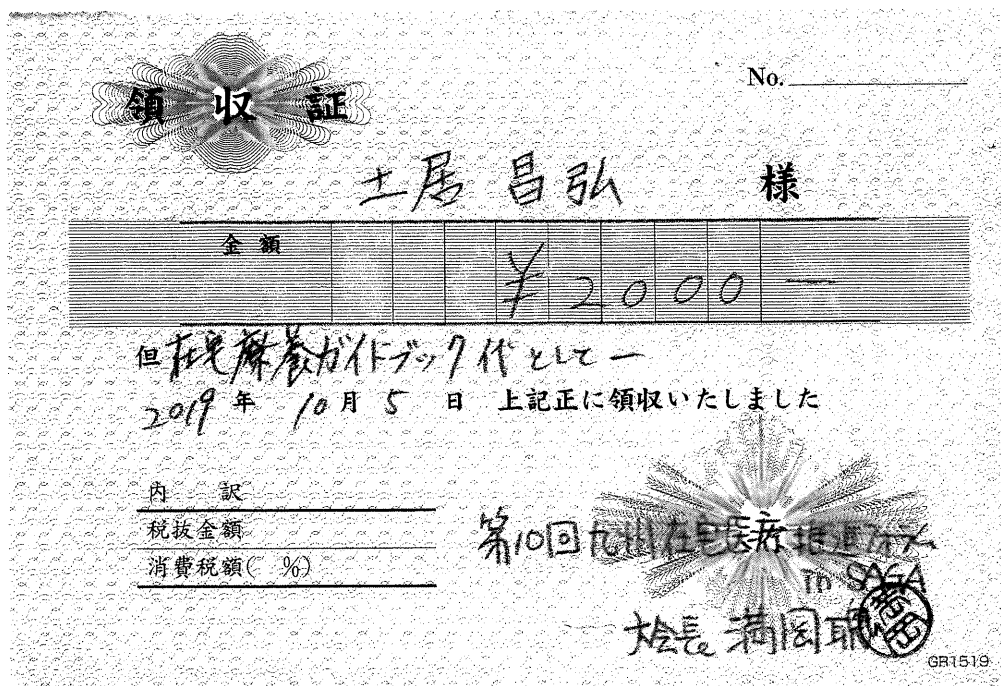 領収証
No.
土居 昌弘 様
金額 ¥2000―
但 在宅療養ガイドブック代として―
2019年 10月 5日 上記正に領収いたしました
内訳
税抜金額
消費税額( %)
第10回九州在宅医療推進フォーラム
in SAGA
大会長 満岡聰
満岡
GR1519